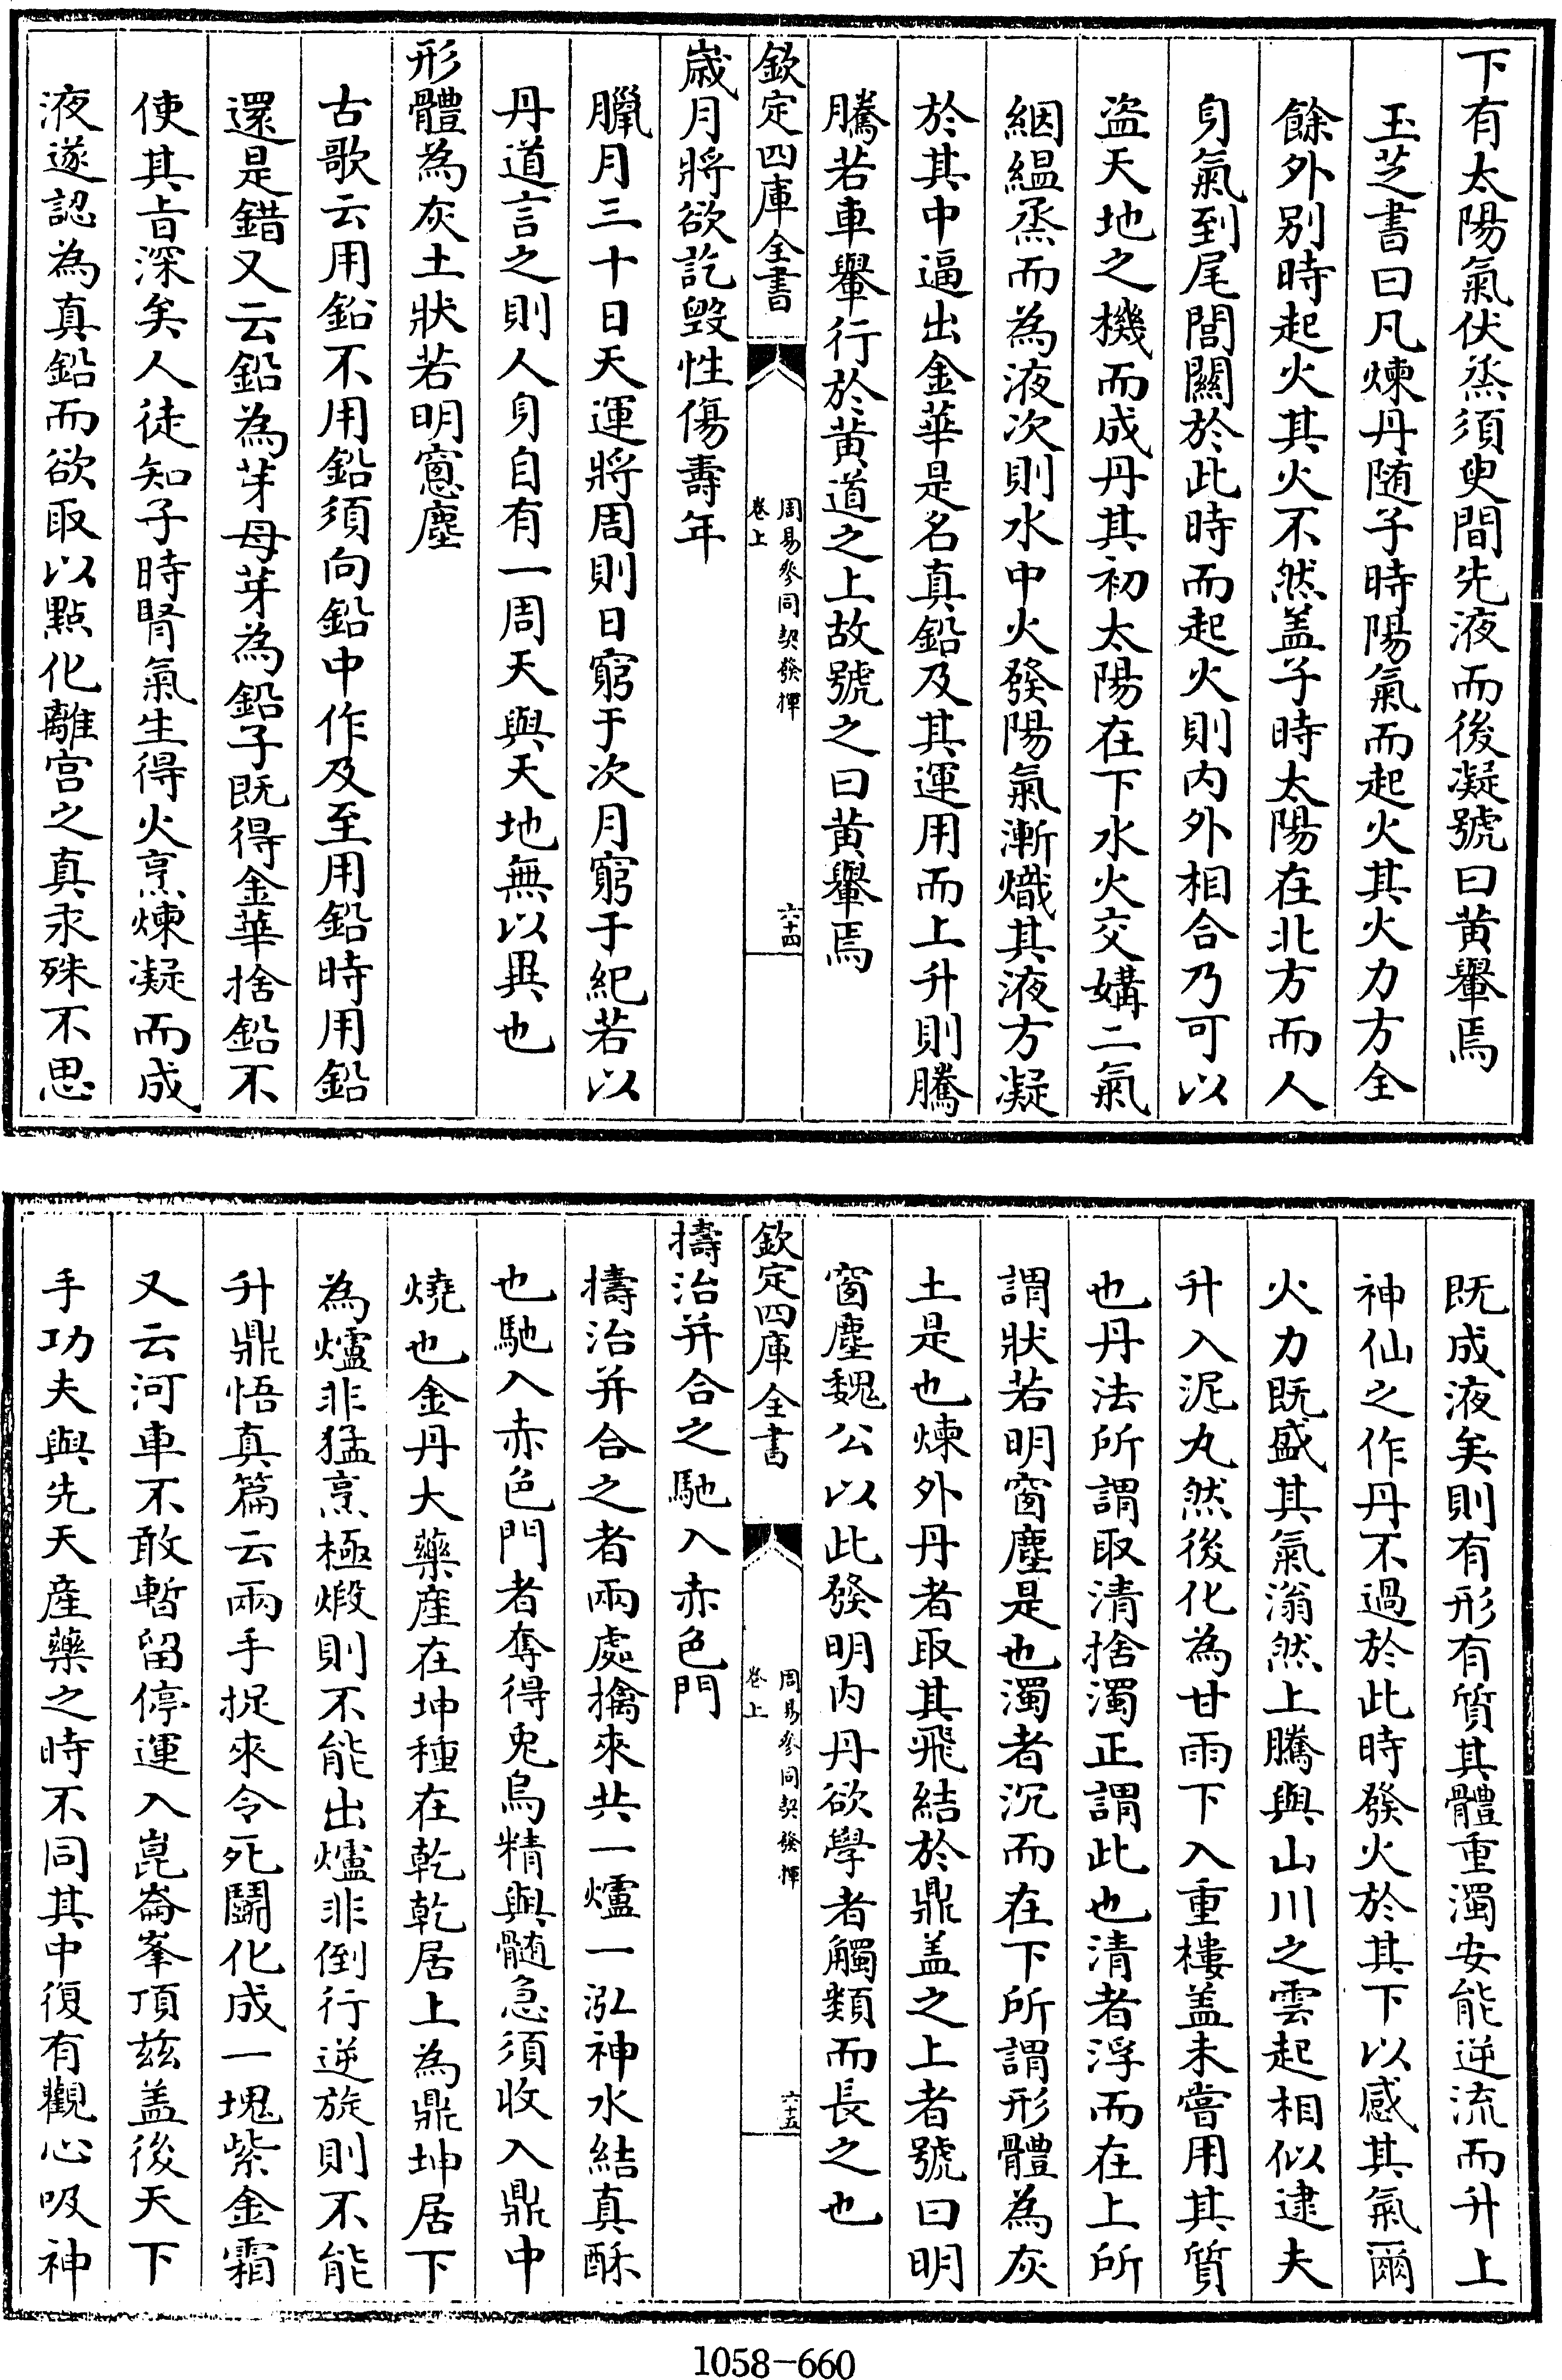 下有太陽氣伏蒸須臾間先液而後凝號曰黄轝焉
玉芝書曰凡煉丹随子時陽氣而起火其火力方全
餘外别時起火其火不然盖子時太陽在北方而人
身氣到尾閭關於此時而起火則内外相合乃可以
盗天地之機而成丹其初太陽在下水火交媾二氣
絪縕烝而為液次則水中火發陽氣漸熾其液方凝
於其中逼出金華是名真鉛及其運用而上升則騰
騰若車轝行於黄道之上故號之曰黄轝焉
欽定四庫全書
周易參同契發揮
卷上
六十四
歳月將欲訖毀性傷壽年
臘月三十日天運將周則日窮于次月窮于紀若以
丹道言之則人身自有一周天與天地無以異也
形體為灰土狀若明窻塵
古歌云用鉛不用鉛須向鉛中作及至用鉛時用鉛
還是錯又云鉛為芽母芽為鉛子既得金華捨鉛不
使其㫖深矣人徒知子時腎氣生得火烹煉凝而成
液遂認為真鉛而欲取以點化離宫之真汞殊不思
既成液矣則有形有質其體重濁安能逆流而升上
神仙之作丹不過於此時發火於其下以感其氣爾
火力既盛其氣滃然上騰與山川之雲起相似逮夫
升入泥丸然後化為甘雨下入重樓盖未嘗用其質
也丹法所謂取清捨濁正謂此也清者浮而在上所
謂狀若明窗塵是也濁者沉而在下所謂形體為灰
土是也煉外丹者取其飛結於鼎盖之上者號曰明
窗塵魏公以此發明内丹欲學者觸類而長之也
欽定四庫全書
周易參同契發揮
卷上
六十五
擣治并合之馳入赤色門
擣治并合之者兩處擒來共一爐一泓神水結真酥
也馳入赤色門者奪得兎烏精與髄急須收入鼎中
燒也金丹大藥産在坤種在乾乾居上為鼎坤居下
為爐非猛烹極煅則不能出爐非倒行逆旋則不能
升鼎悟真篇云兩手捉來令死鬭化成一塊紫金霜
又云河車不敢暫留停運入崑崙峯頂兹盖後天下
手功夫與先天産藥之時不同其中復有觀心吸神
1058-660